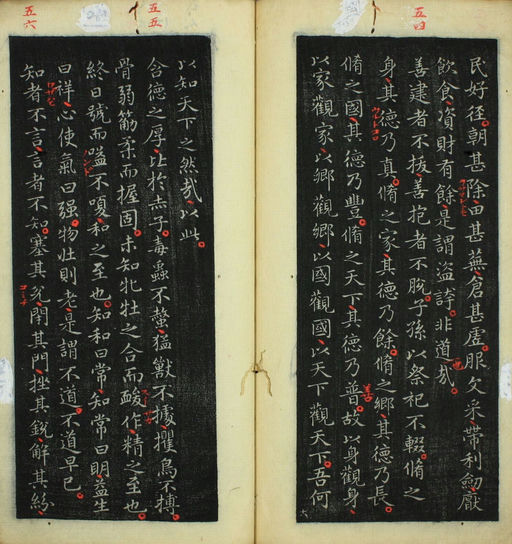 五四
民好徑朝甚除田甚蕪倉甚虛服文采帶利劒厭
飲食資財有餘是謂盜誇非道哉
也
善建者不拔善抱者不脫子孫以祭祀不輟脩之
身其德乃真脩之家其德乃餘脩之鄉其德乃長
善
脩之國其德乃豐脩之天下其德乃普故以身觀身
以家觀家以鄉觀鄉以國觀國以天下觀天下吾何
五五
以知天下之然哉以此
含德之厚比於赤子毒蟲不螫猛獸不據攫鳥不搏
骨弱筋柔而握固未知牝牡之合而酸作精之至也
終日號而嗌不嗄和之至也知和曰常知常曰明益生
曰祥心使氣曰强物壯則老是謂不道不道早已
五六
知者不言言者不知塞其兌閇其門挫其銳解其紛